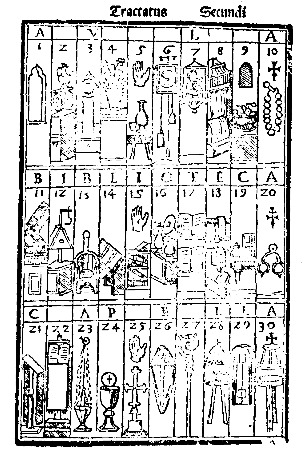 Tractatus Secundi
A V L A
1 2 3 4 5 6 7 8 9 10
B I B L I O T E C A
11 12 13 14 15 16 17 18 19 20
C A P E L L A
21 22 23 24 25 26 27 28 29 30